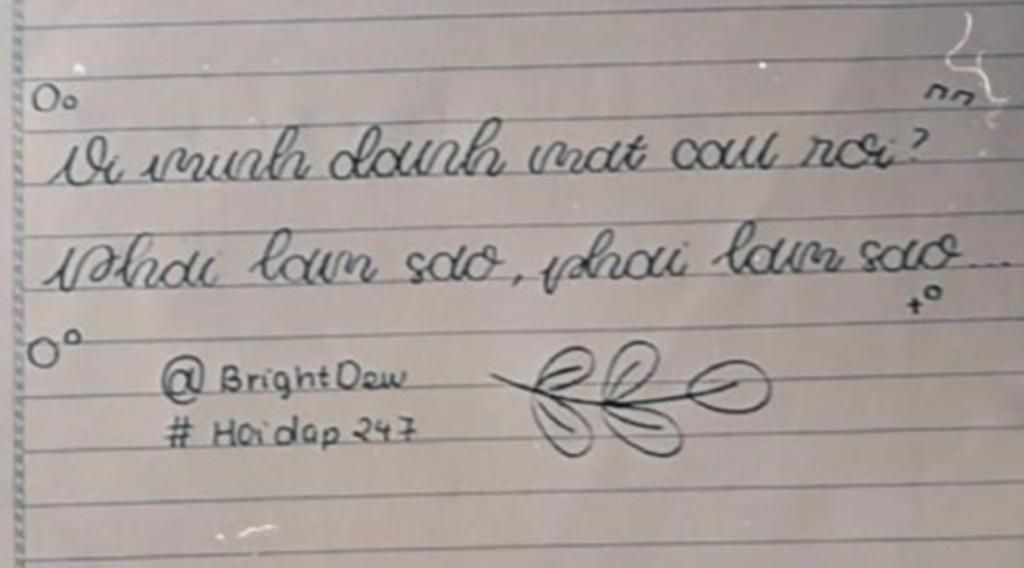 Vi minh danh mat cau roi?
Phai lam sao, phai lam sao...
@BrightDew
# Hoidap247